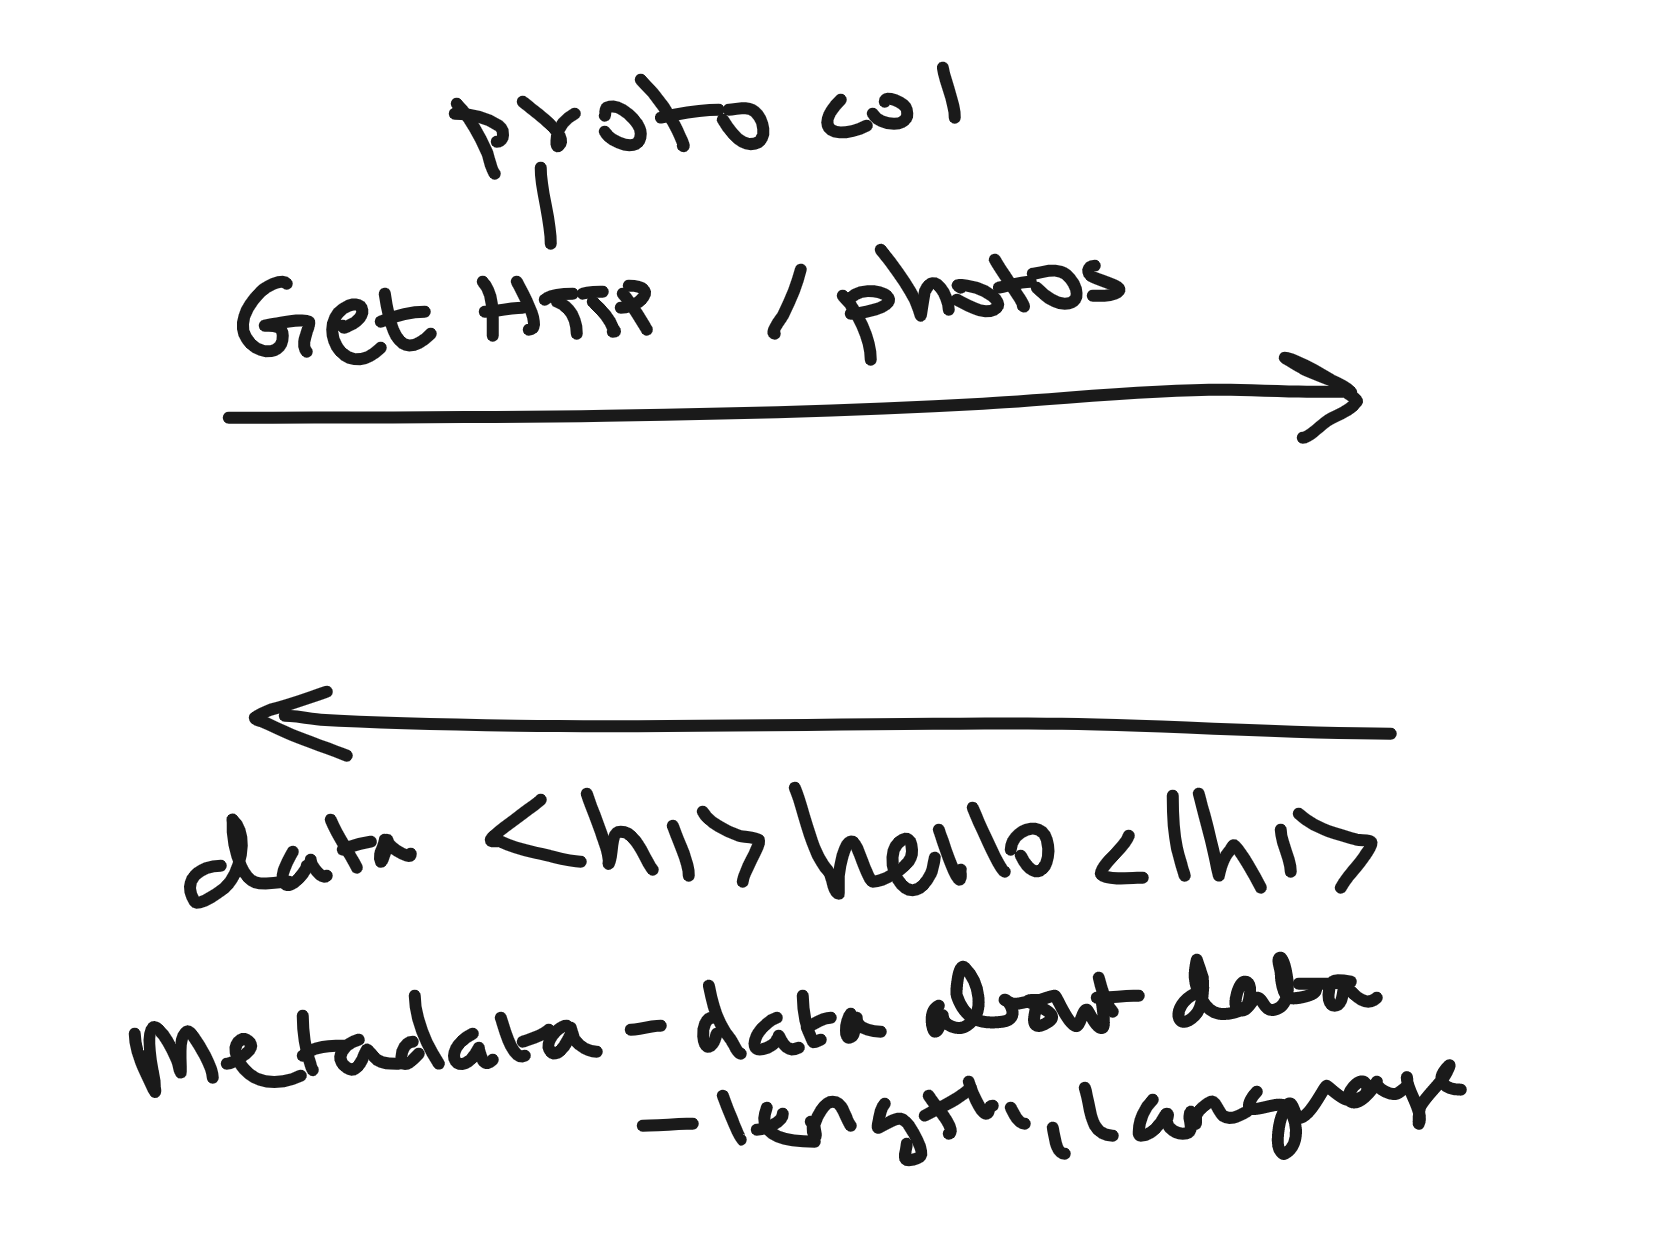 protocol
Get HTTP /photos
data <h1>hello</h1>
Metadata - data about data
- length, language